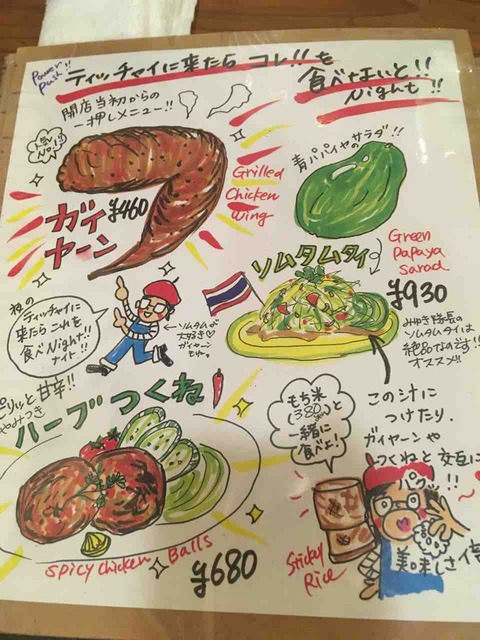 Power Push!!
ティッチャイに来たら コレ!!を
食べナイと!!
Night!!
開店当初からの
一押しメニュー!!
人気No.1
ガイヤーン
¥460
Grilled
Chicken
Wing
青パパイヤのサラダ!!
ソムタムタイ
Green
Papaya
Sarad
¥930
みゆき隊長の
ソムタムタイは
絶品なのです!!
オススメ!!
ティッチャイに
来たらこれを
食べNight!!
ナイト!!
←ソムタムも
大好き♡
ガイヤーン
ピリッと甘辛!!
やみつき
ハーブつくね!
Spicy Chicken Balls
¥680
もち米
(380)と
一緒に
食べよ!
Sticky
Rice
この汁に
つけたり、
ガイヤーンや
つくねと交互に
パクッ!!
美味しさ倍